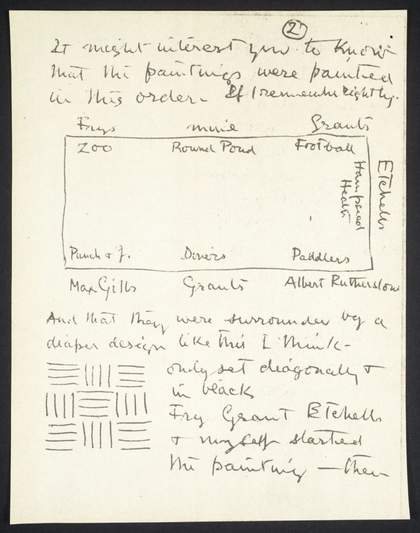 2
It might interest you to know
that the paintings were painted
in this order. If I remember rightly.
Frys mine Grants
Zoo Round Pond Football
Hampstead Heath
Etchells
Punch & J. Divers Paddlers
Max Gills Grants Albert Rutherstons
And that they were surrounded by a
diaper design like this I think -
only set diagonally &
in blacks
Fry Grant Etchells
& myself started
the painting - then